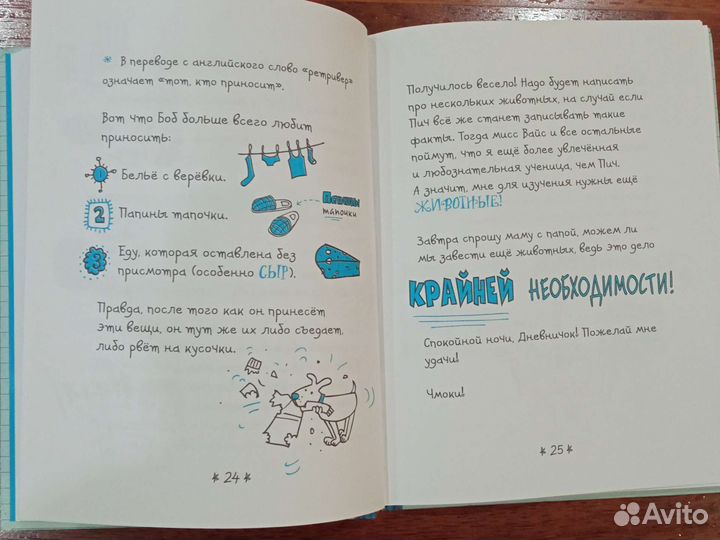 * В переводе с английского слово «ретривер»
означает «тот, кто приносит».
Вот что Боб больше всего любит
приносить:
1 Бельё с верёвки.
2 Папины тапочки.
Папины
тапочки
3 Еду, которая оставлена без
присмотра (особенно СЫР).
Правда, после того как он принесёт
эти вещи, он тут же их либо съедает,
либо рвёт на кусочки.
* 24 *
Получилось весело! Надо будет написать
про нескольких животных, на случай если
Пич всё же станет записывать такие
факты. Тогда мисс Вайс и все остальные
поймут, что я ещё более увлечённая
и любознательная ученица, чем Пич.
А значит, мне для изучения нужны ещё
ЖИВОТНЫЕ!
Завтра спрошу маму с папой, можем ли
мы завести ещё животных, ведь это дело
КРАЙНЕЙ НЕОБХОДИМОСТИ!
Спокойной ночи, Дневничок! Пожелай мне
удачи!
Чмоки!
* 25 *
Avito